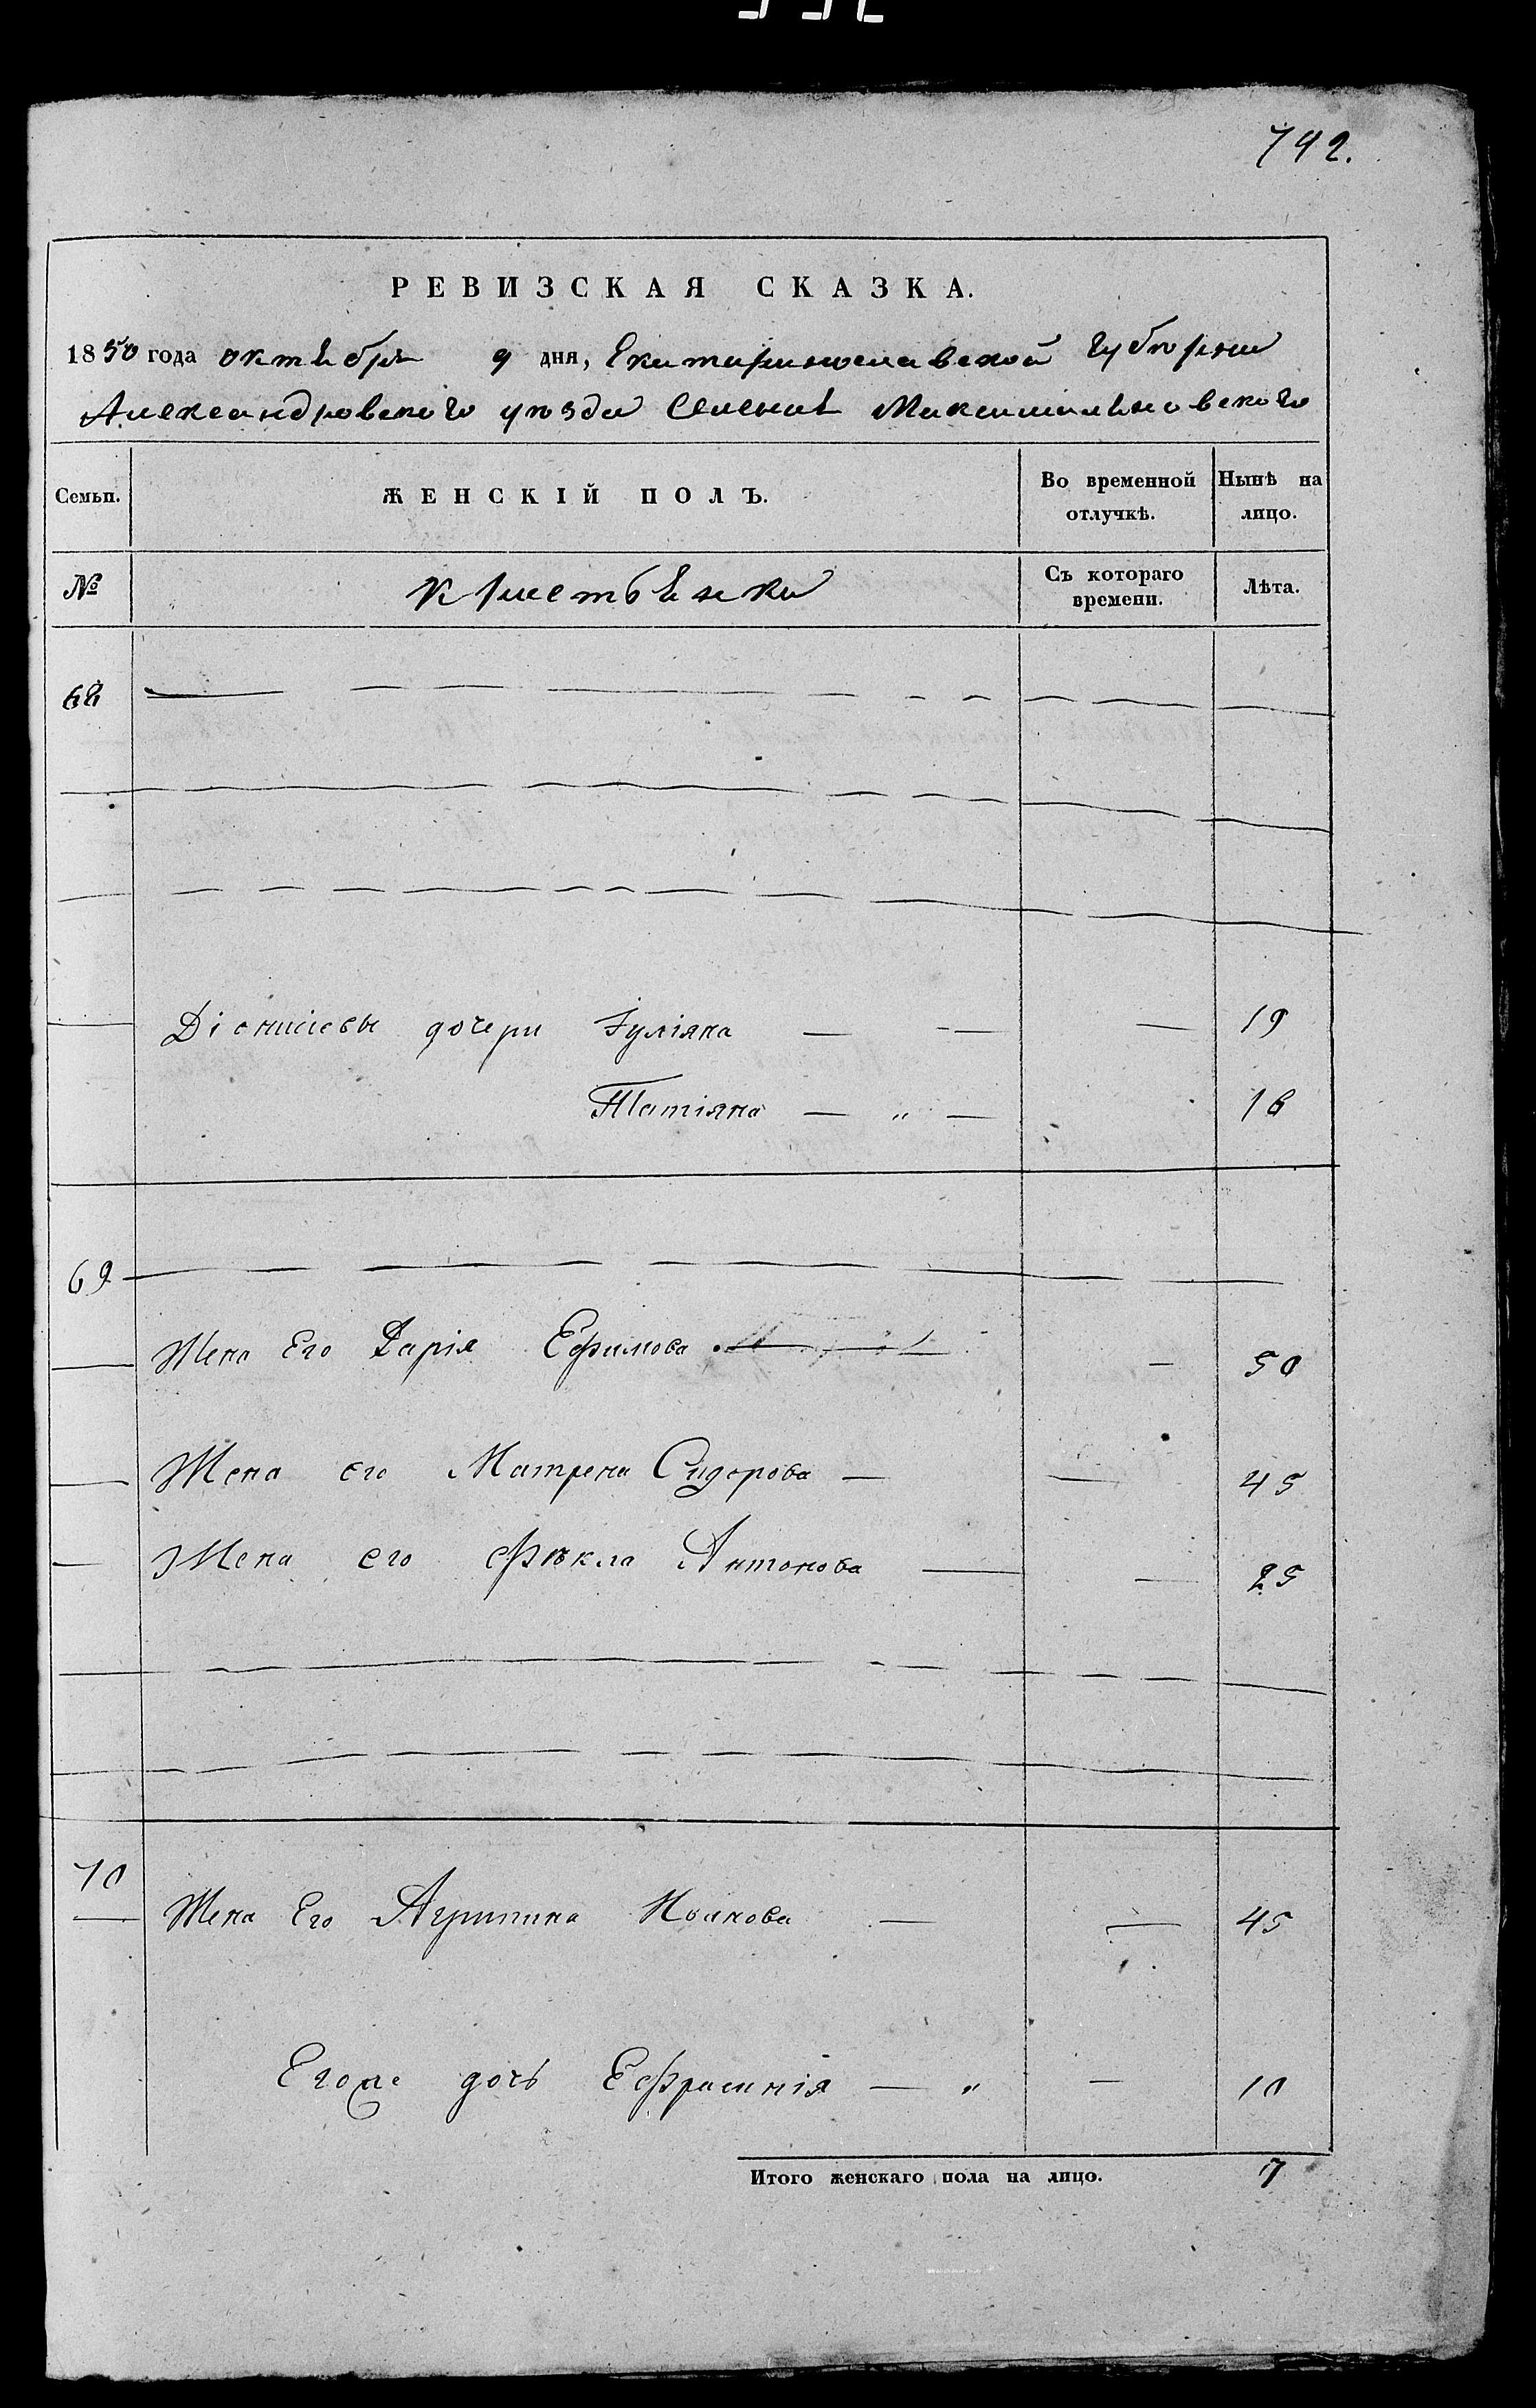 742.
РЕВИЗСКАЯ СКАЗКА.
1850 года октября 9 дня, Екатеринославской губернии
Александровского уезда Селения Максимилья­новского
Семьи. ЖЕНСКІЙ ПОЛЪ. Во временной отлучкѣ. Нынѣ на лицо.
№ Крестьянки Съ котораго времени. Лѣта.
68
Діонисіевы дочери Іуліяна — — — 19
Татіяна — „ — 16
69
Жена Его Дарія Ефимова — 50
Жена его Матрена Сидорова — — 45
Жена его Фекла Антонова — — 25
70
Жена Его Агрипина Иванова — — 45
Егоже дочь Ефросинія — „ — 10
Итого женскаго пола на лицо. 7